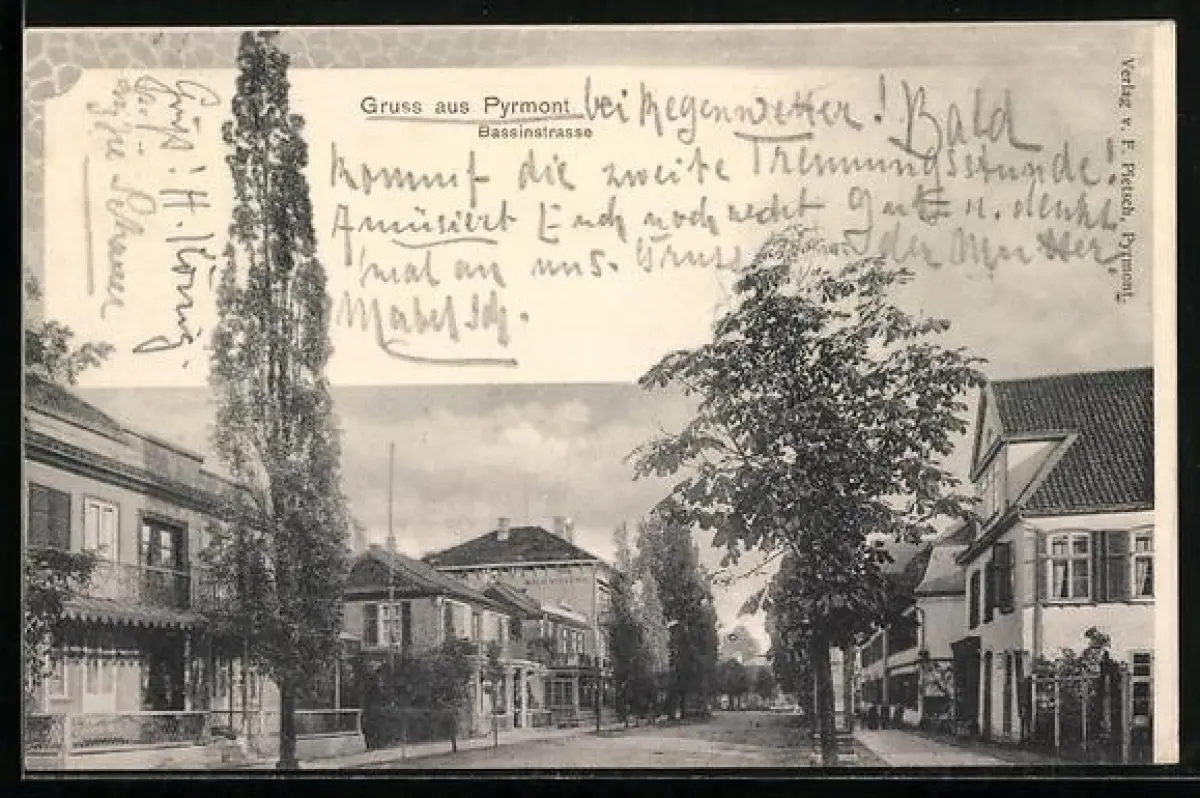 Gruss aus Pyrmont bei Regenwetter! Bald
Bassinstrasse
kommt die zweite Trennungsstunde!
Amüsiert Euch noch recht gut u. denkt
'mal an uns. Gruss der Mutter.
Mabel Sch.
Grüßt! H. König.
Verlag v. F. Pietsch, Pyrmont.